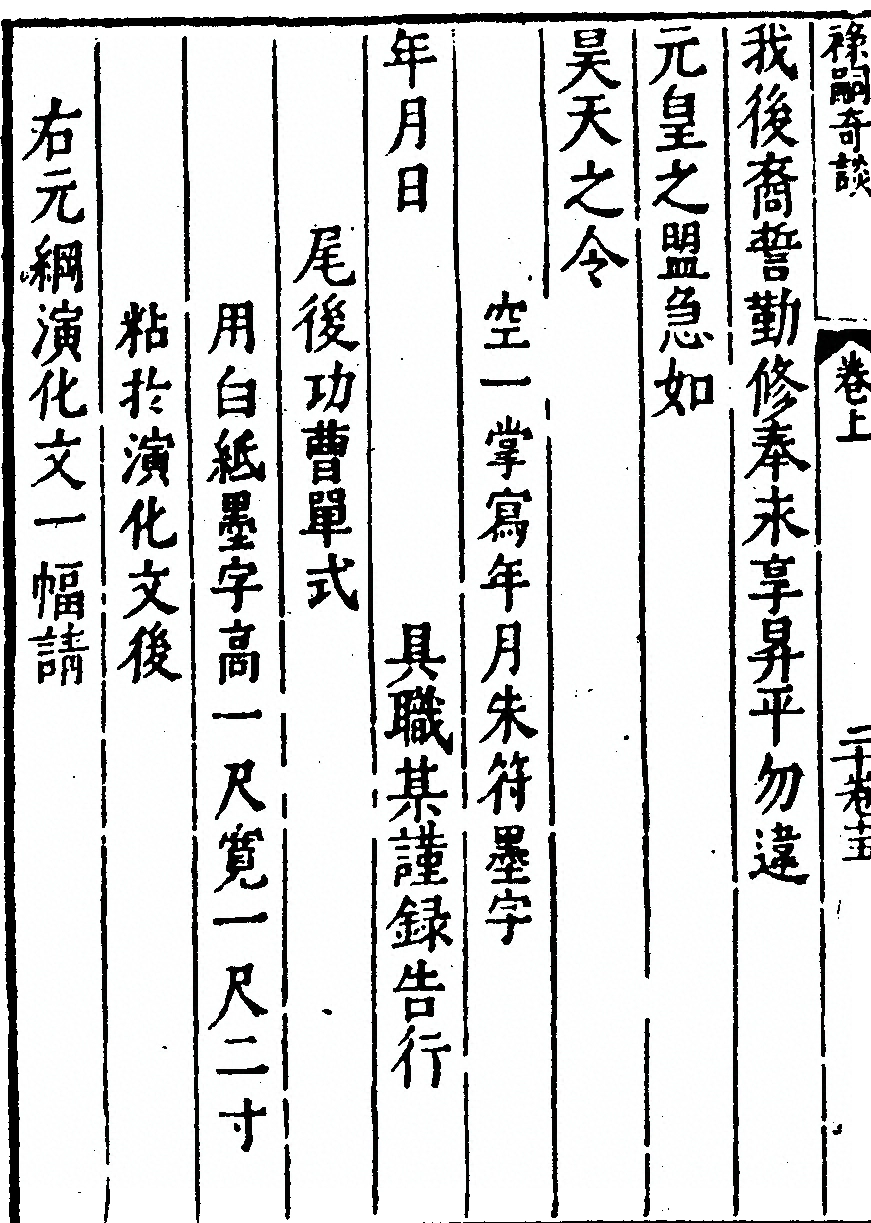 祿嗣奇談
卷上
我後裔誓勤修奉永享昇平勿違
元皇之盟急如
昊天之令
空一掌寫年月朱符墨字
年月日
具職某謹録告行
尾後功曹單式
用白紙墨字高一尺寬一尺二寸
粘於演化文後
右元綱演化文一幅請